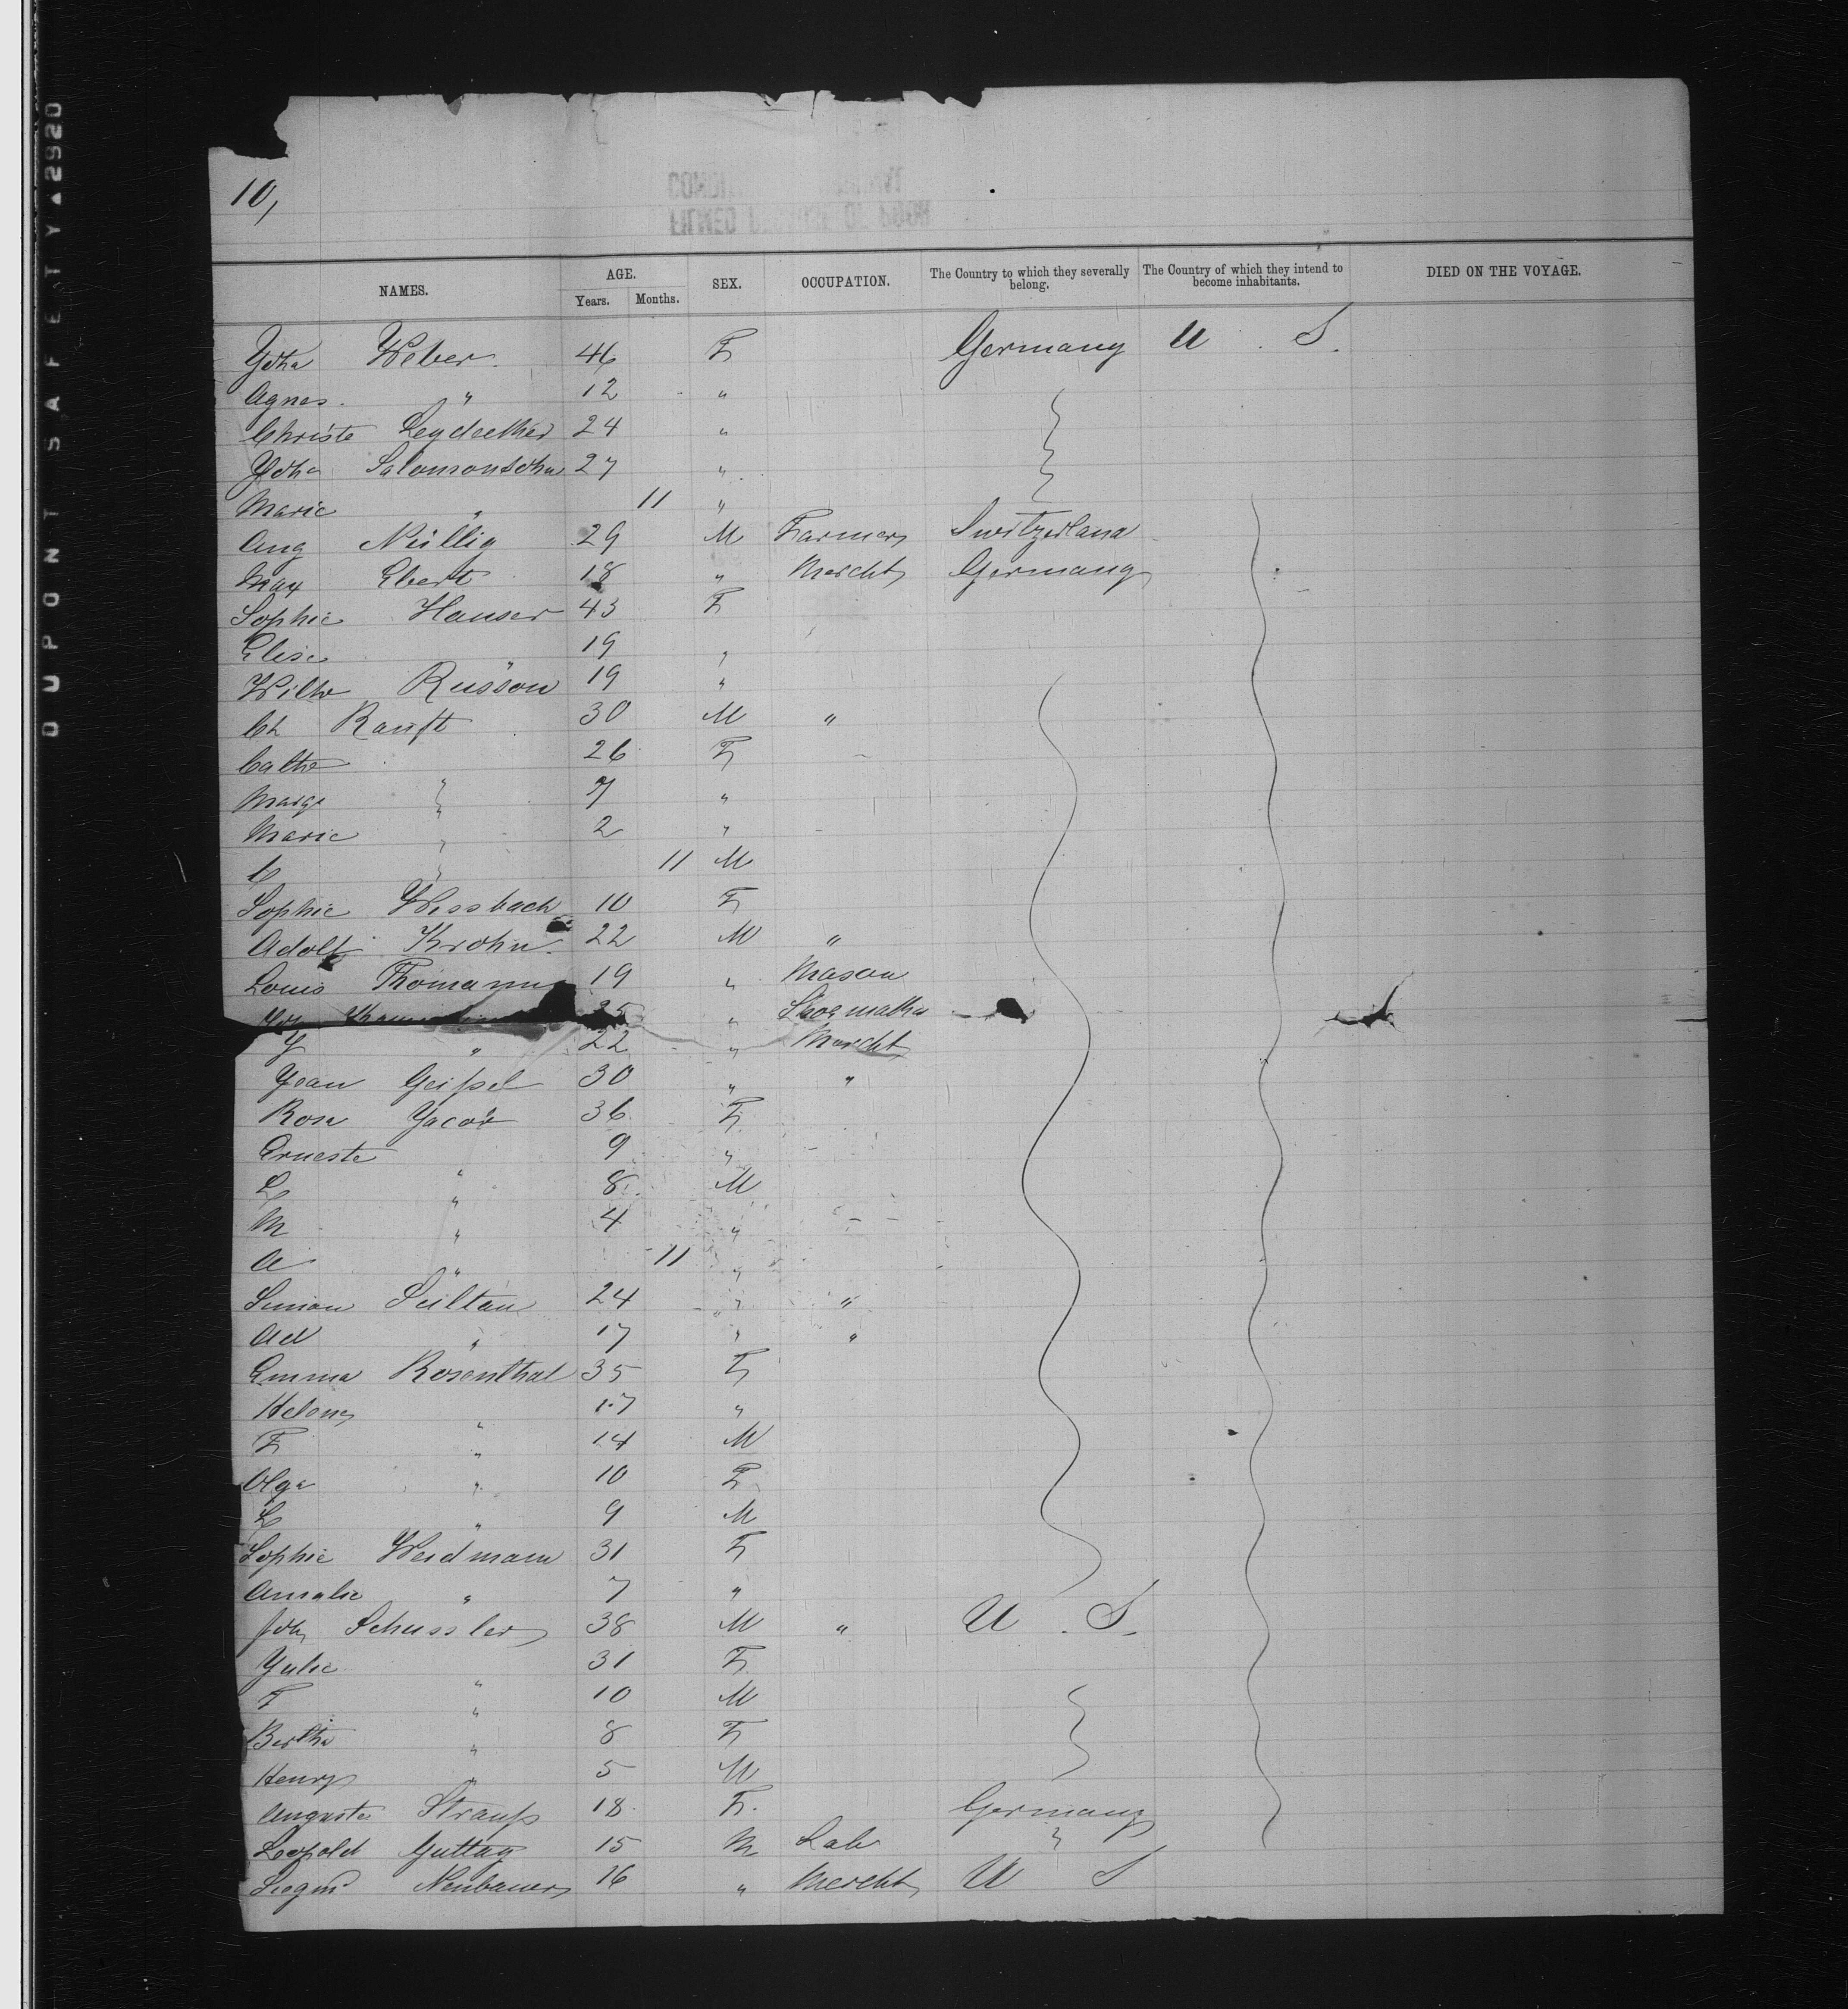 DUPONT SAFETY ▲2920
10,
NAMES. AGE. Years. Months. SEX. OCCUPATION. The Country to which they severally belong. The Country of which they intend to become inhabitants. DIED ON THE VOYAGE.
Yoha Weber 46 F Germany U. S.
Agnes " 12 "
Christe 24 "
Yoha Salomonsohn 27 "
Marie " 11 "
Aug Nüllig 29 M Farmer Switzerland
Max Ebert 18 " Mercht Germany
Sophie Hauser 43 F
Elise " 19 "
Wilhe Russon 19 "
Ch Ranft 30 M "
Cathe " 26 F
Marge " 7 "
Marie " 2 "
C " 11 M
Sophie Wessbach 10 F
Adolf Krohn 22 M "
Louis Thomann 19 " Mason
25 " Shoemaker
Y " 22 " Mercht
Yean Geissel 30 " "
Rosa Yacob 36 F
Erneste " 9 "
L " 8 M
M " 4 "
A " 11 "
Simon Sultan 24 " "
Ad " 17 " "
Emma Rosenthal 35 F
Helene " 17 "
F " 14 M
Olga " 10 F
L " 9 M
Sophie Weidmann 31 F
Amalie " 7 "
Joh Schussler 38 M " U. S.
Yulie " 31 F
F " 10 M
Bertha " 8 F
Henry " 5 M
Auguste Strauss 18 F. Germany
Leopold Guttag 15 M Lab "
Siegm Neubauer 16 " Mercht U S